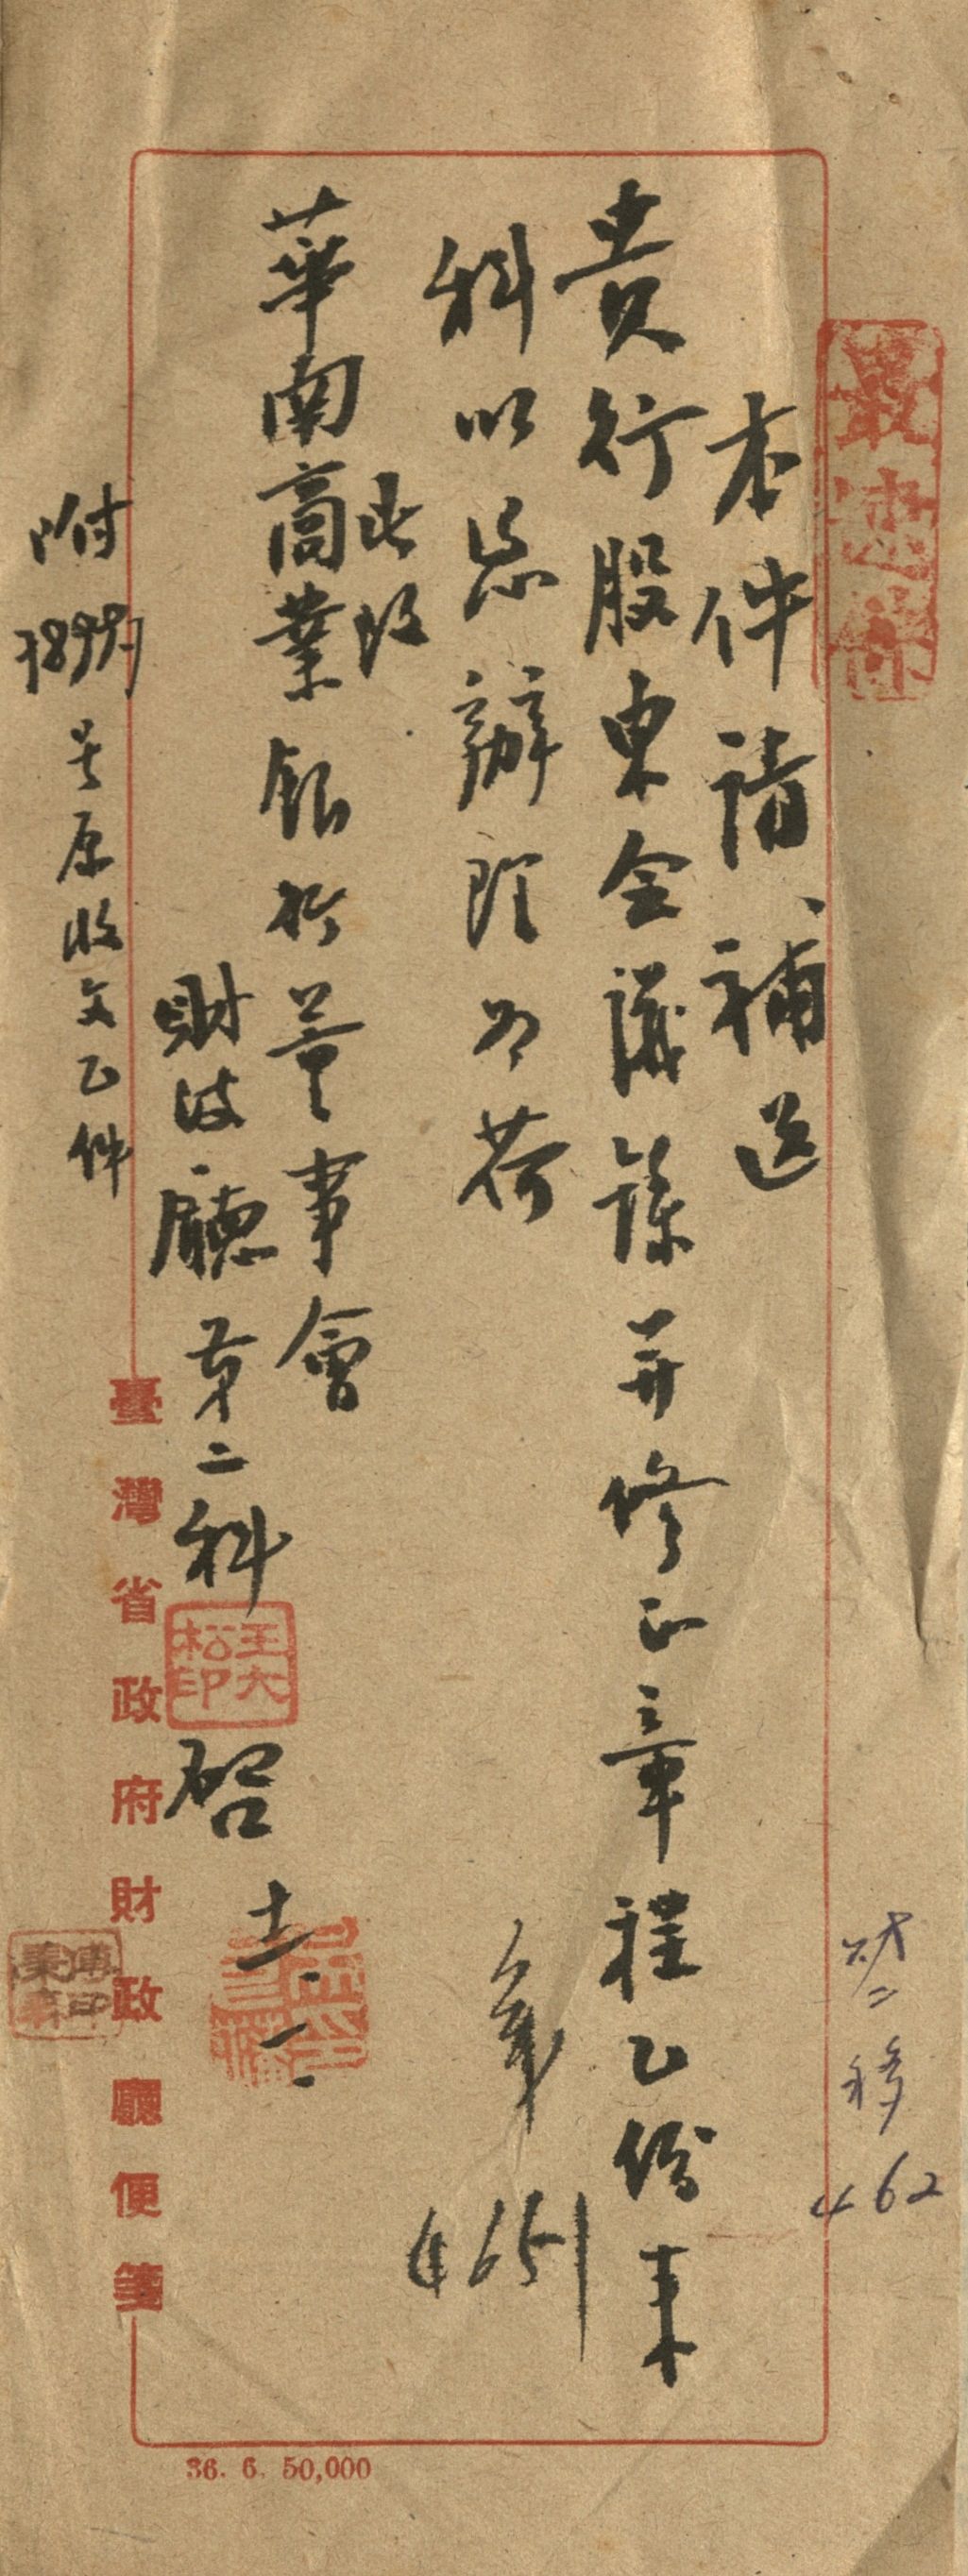 最速件
本件請補送
貴行股東会議錄并修正章程乙份來
科以憑辦理為荷
此致
華南商業銀行董事會
財政廳第二科
王大松印
啓 十一
附
号原收文乙件
臺灣省政府財政廳便箋
財二移
462
36. 6. 50,000